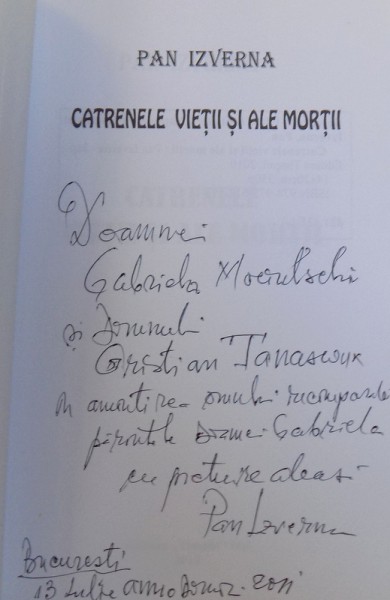 PAN IZVERNA
CATRENELE VIEȚII ȘI ALE MORȚII
Doamnei
Gabriela
și Domnului
Cristian Tanasciuk
în amintirea omului
părintele Gabriela
cu prețuire aleasă
Pan Izverna
București
13 Iulie anno Domini 2011